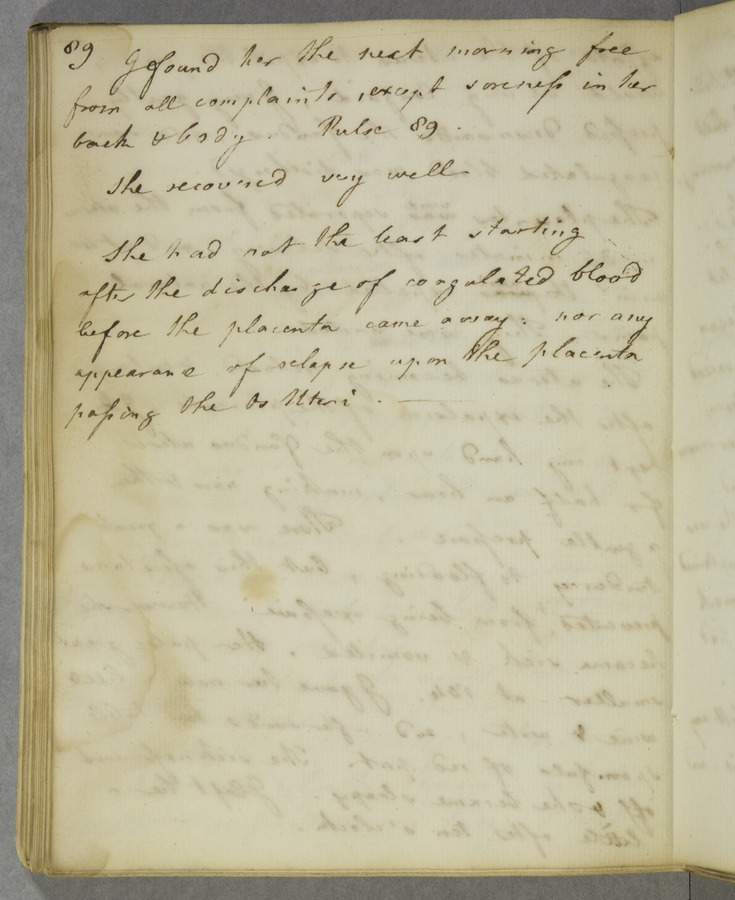 89 I found her the next morning free
from all complaints, except soreness in her
back & body. Pulse 89.
She recovered very well
She had not the least starting
after the discharge of coagulated blood
before the placenta came away: nor any
appearance of relapse upon the placenta
passing the Os Uteri.